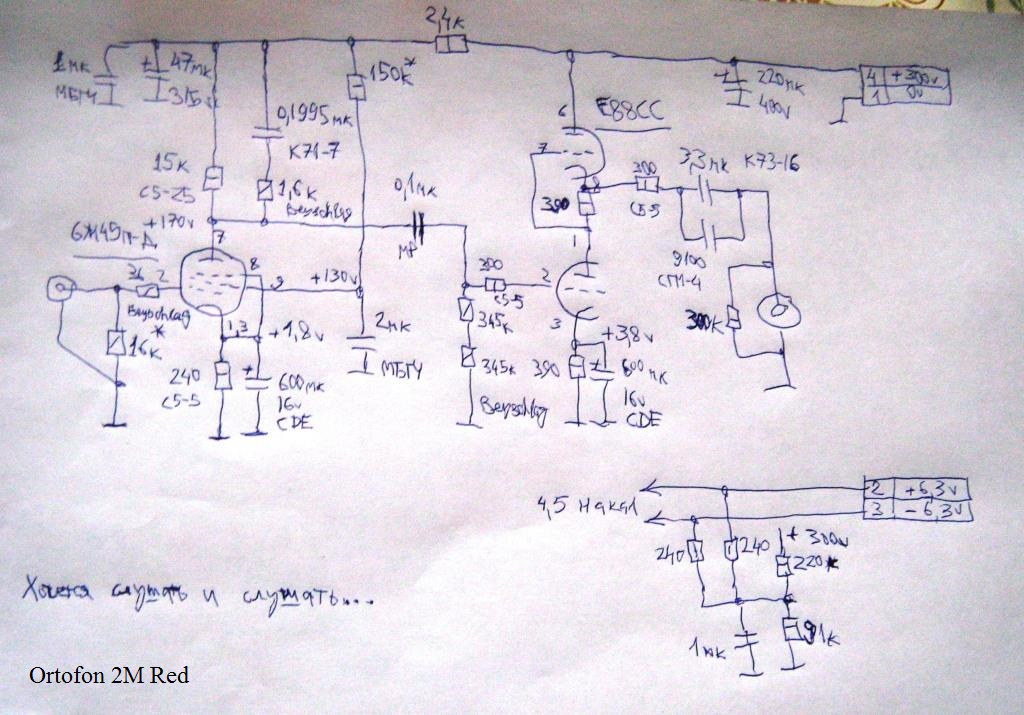 2,4к
1мк
МБГЧ
47мк
315v
150к*
0,1995мк
К71-7
15к
С5-25
1,6к
Beyschlag
+170v
7
0,1мк
МР
E88CC
6
7
8
220мк
400v
4 +300v
1 0v
300
С5-5
3,3мк К73-16
9100
СГМ-4
390
1
36
2
8
9
+130v
Beyschlag
*
16к
1,3
+1,8v
240
С5-5
600мк
16v
CDE
2мк
МБГЧ
300
С5-5
2
345к
345к
Beyschlag
3
+3,8v
390
600мк
16v
CDE
300К
4,5 Накал
2 +6,3v
3 -6,3v
240
240
+300v
220к
1мк
91к
Хочется слушать и слушать...
Ortofon 2M Red